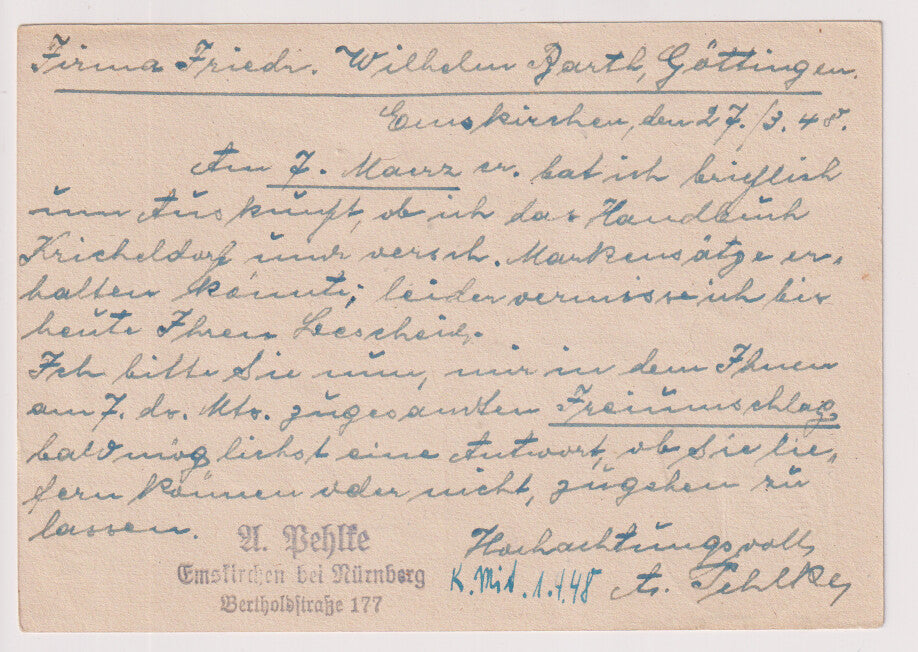 Firma Friedr. Wilhelm Barth, Göttingen.
Emskirchen, den 27./3.48.
Am 7. Maerz cr. bat ich brieflich
um Auskunft, ob ich das Handbuch
Kricheldorf und versch. Markensätze er-
halten könnte; leider vermisse ich bis
heute Ihren Bescheid.
Ich bitte Sie nun, mir in dem Ihnen
am 7. ds. Mts. zugesandten Freiumschlag
baldmöglichst eine Antwort, ob Sie lie-
fern können oder nicht, zugehen zu
lassen.
Hochachtungsvoll,
A. Pehlke
K. Mit. 1.4.48
A. Pehlke
Emskirchen bei Nürnberg
Bertholdstraße 177